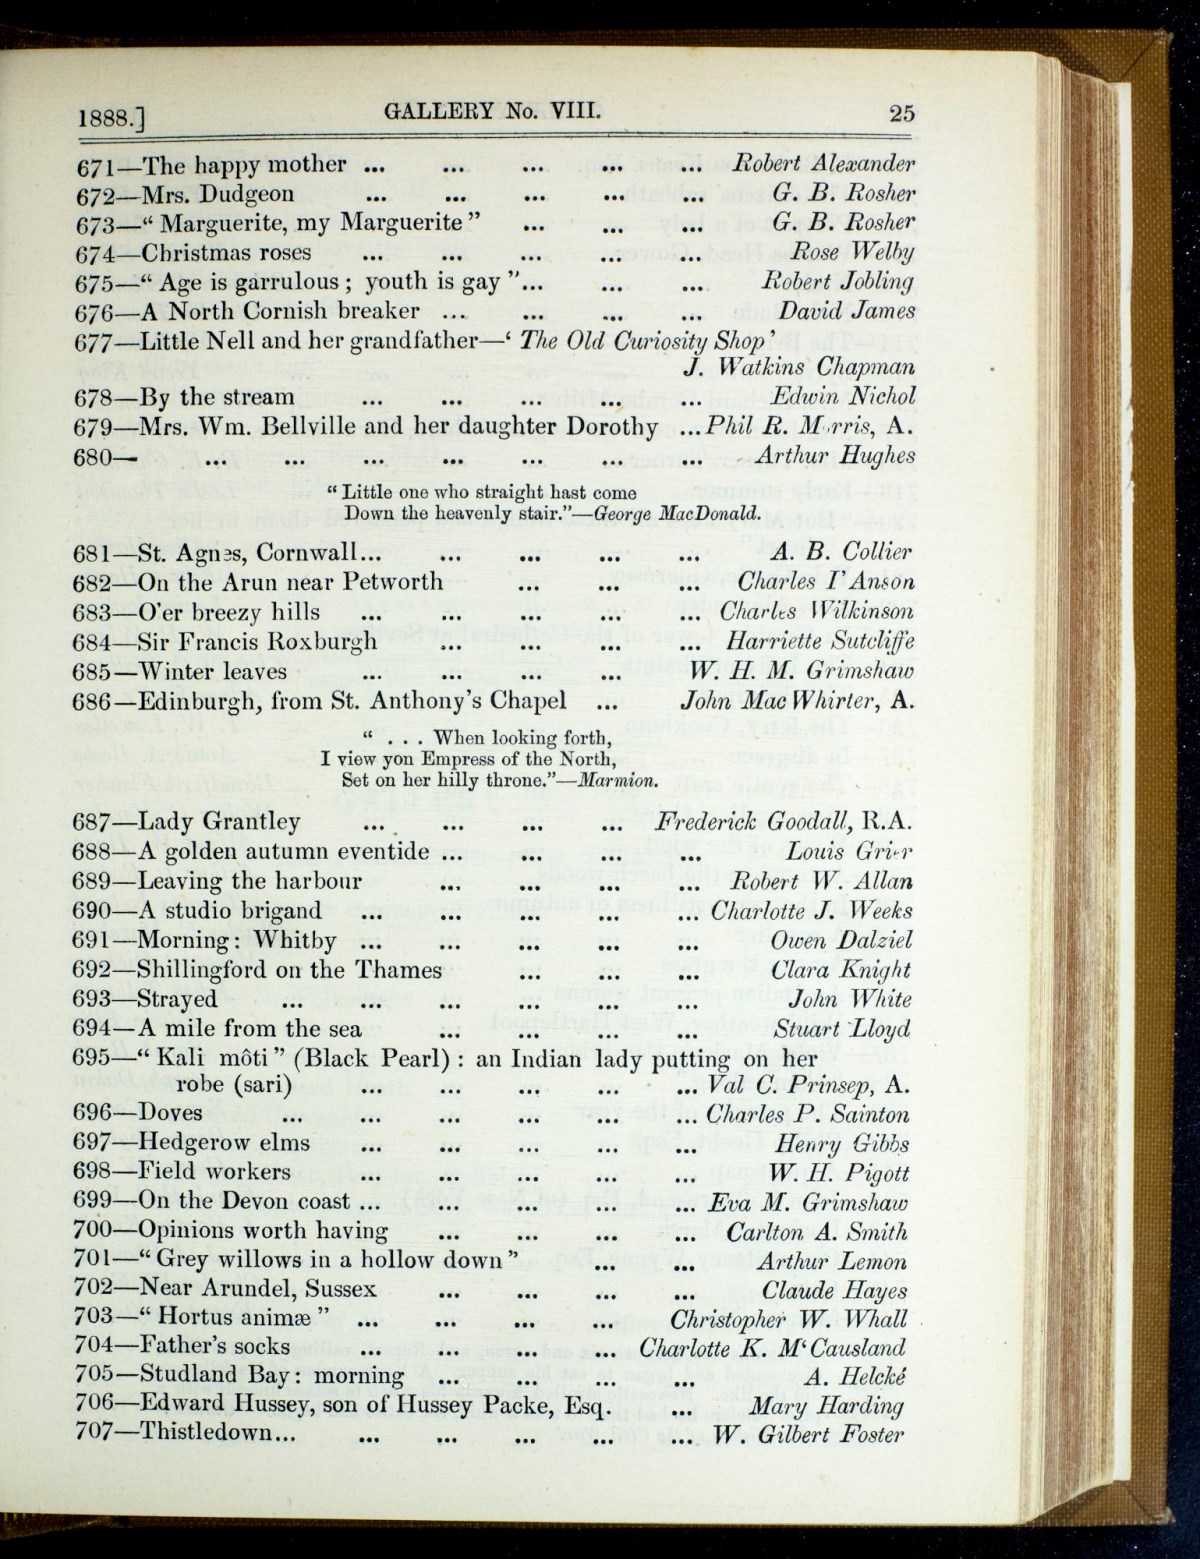 1888.] GALLERY No. VIII. 25
671—The happy mother ... ... ... ... ... Robert Alexander
672—Mrs. Dudgeon ... ... ... ... ... G. B. Rosher
673—“ Marguerite, my Marguerite ” ... ... ... G. B. Rosher
674—Christmas roses ... ... ... ... ... Rose Welby
675—“ Age is garrulous ; youth is gay ”... ... ... Robert Jobling
676—A North Cornish breaker ... ... ... ... David James
677—Little Nell and her grandfather—‘ The Old Curiosity Shop ’
J. Watkins Chapman
678—By the stream ... ... ... ... Edwin Nichol
679—Mrs. Wm. Bellville and her daughter Dorothy ...Phil R. Morris, A.
680— ... ... ... ... ... ... ... Arthur Hughes
“ Little one who straight hast come
Down the heavenly stair.”—George MacDonald.
681—St. Agnes, Cornwall... ... ... ... ... A. B. Collier
682—On the Arun near Petworth ... ... ... Charles I’Anson
683—O’er breezy hills ... ... ... ... ... Charles Wilkinson
684—Sir Francis Roxburgh ... ... ... ... Harriette Sutcliffe
685—Winter leaves ... ... ... ... W. H. M. Grimshaw
686—Edinburgh, from St. Anthony’s Chapel ... John MacWhirter, A.
“ . . . When looking forth,
I view yon Empress of the North,
Set on her hilly throne.”—Marmion.
687—Lady Grantley ... ... ... ... Frederick Goodall, R.A.
688—A golden autumn eventide ... ... ... ... Louis Grier
689—Leaving the harbour ... ... ... ... Robert W. Allan
690—A studio brigand ... ... ... ... ... Charlotte J. Weeks
691—Morning: Whitby ... ... ... ... ... Owen Dalziel
692—Shillingford on the Thames ... ... ... Clara Knight
693—Strayed ... ... ... ... ... ... John White
694—A mile from the sea ... ... ... ... Stuart Lloyd
695—“ Kali môti ” (Black Pearl) : an Indian lady putting on her
robe (sari) ... ... ... ... ... Val C. Prinsep, A.
696—Doves ... ... ... ... ... ... Charles P. Sainton
697—Hedgerow elms ... ... ... ... ... Henry Gibbs
698—Field workers ... ... ... ... ... W. H. Pigott
699—On the Devon coast ... ... ... ... ... Eva M. Grimshaw
700—Opinions worth having ... ... ... ... Carlton A. Smith
701—“ Grey willows in a hollow down ” ... ... Arthur Lemon
702—Near Arundel, Sussex ... ... ... ... Claude Hayes
703—“ Hortus animæ ” ... ... ... ... Christopher W. Whall
704—Father’s socks ... ... ... ... Charlotte K. M‘Causland
705—Studland Bay: morning ... ... ... ... A. Helcké
706—Edward Hussey, son of Hussey Packe, Esq. ... Mary Harding
707—Thistledown... ... ... ... ... ... W. Gilbert Foster